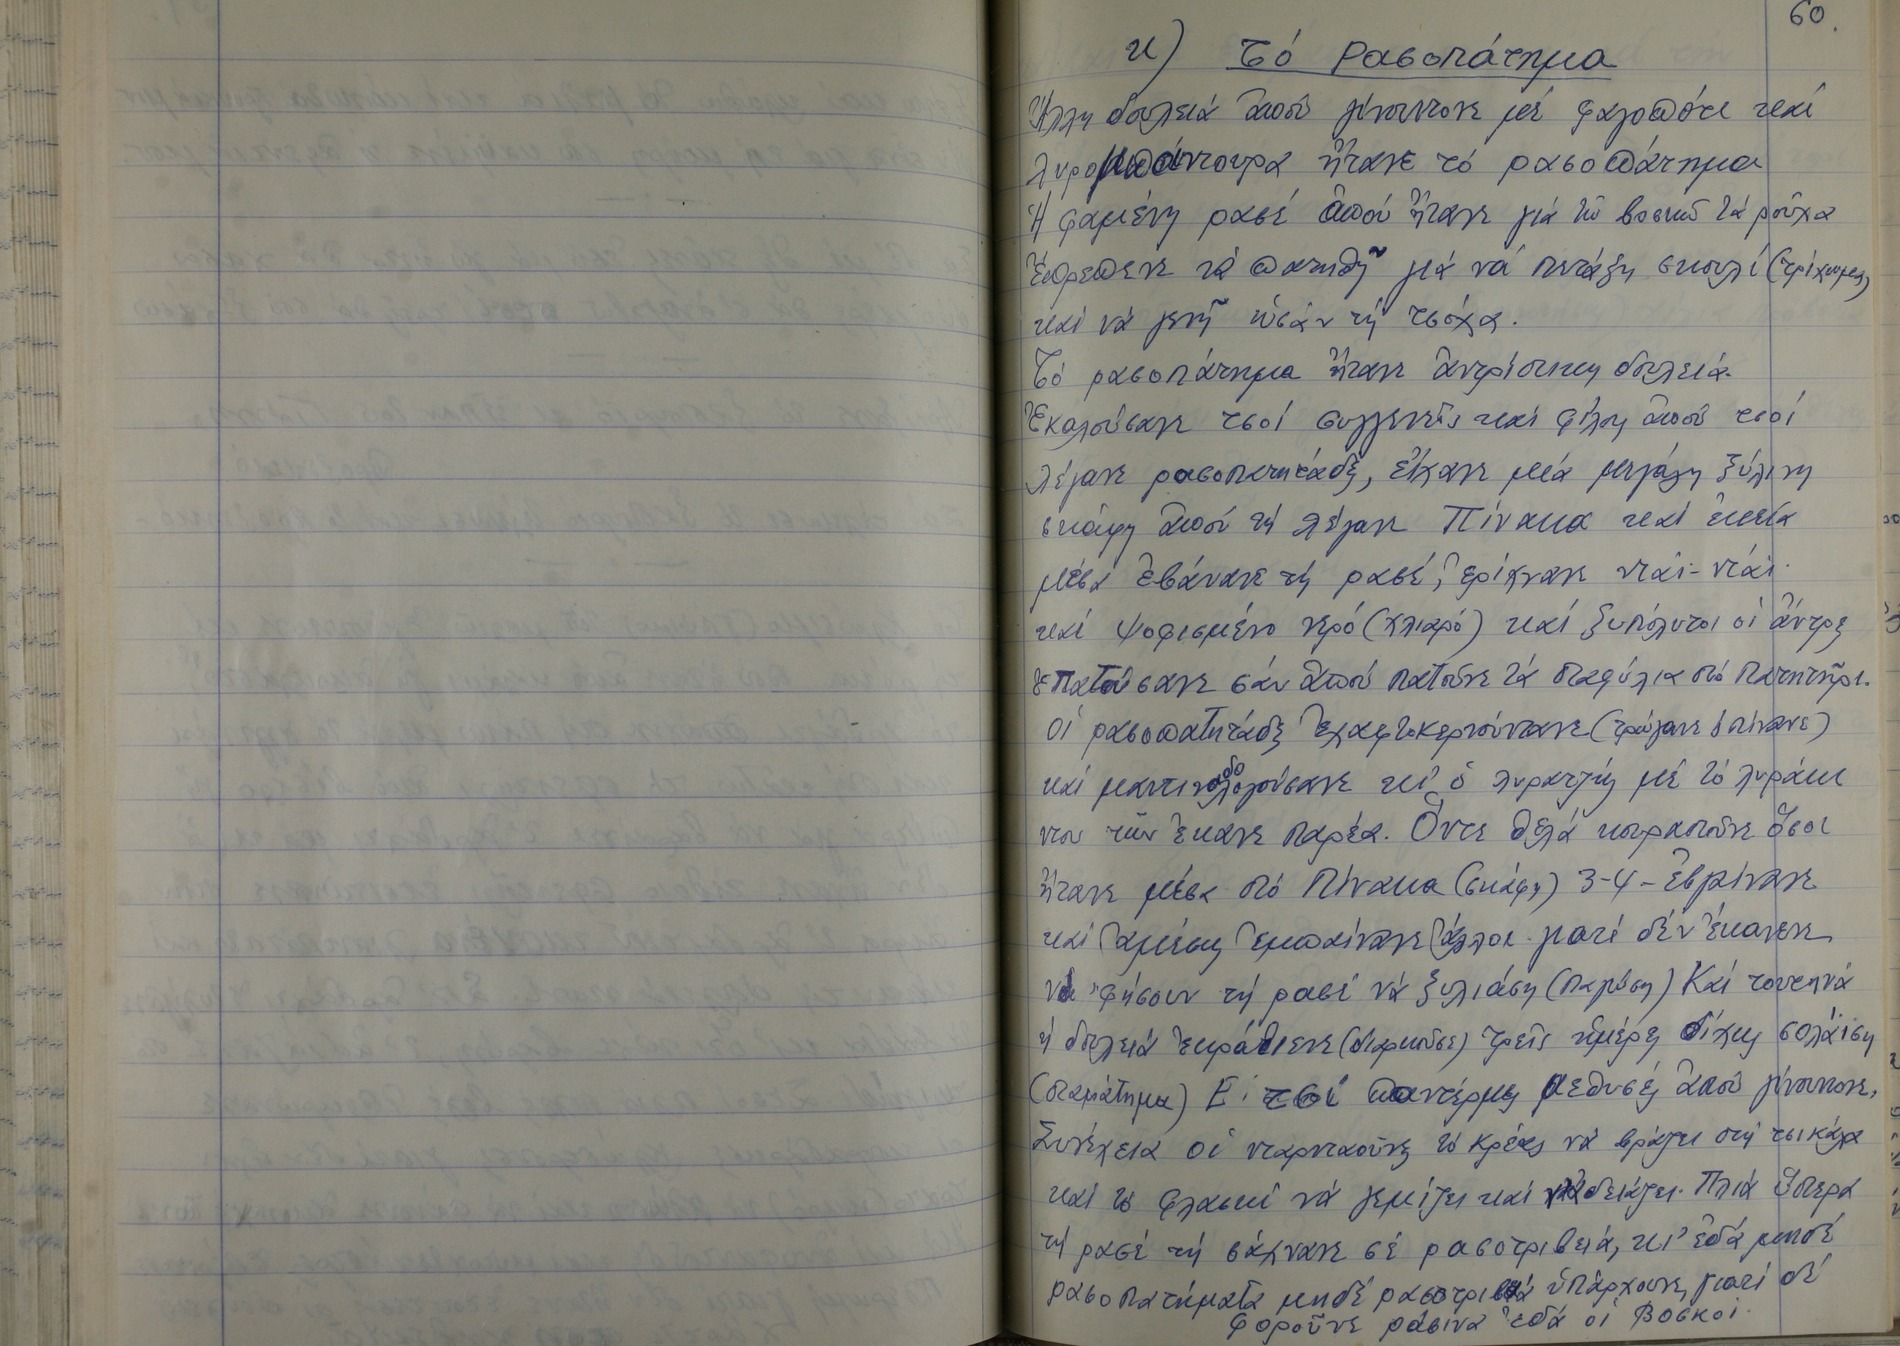 60.
κ) Τό ρασοπάτημα
Ἄλλη δουλειά ἀπού γίνουντονε μέ φαγοπότι καί
λυρομπάντουρα ἤτανε τό ρασοπάτημα
Ἡ φαμένη ρασέ ἀπού ἤτανε γιά τῶ βοσκῶ τά ροῦχα
Ἔπρεπενε νά πατηθῆ γιά νά πετάξη σκουλί (τρίχωμα)
καί νά γενῆ ὡσάν τή τσόχα.
Τό ρασοπάτημα ἤτανε ἀντρίστικη δουλειά.
Ἐκαλούσανε τσοί συγγενεῖς καί φίλοι ἀπού τσοί
λέγανε ρασοπατητάδες, εἴχανε μιά μεγάλη ξύλινη
σκάφη ἀπού τή λέγανε Πίνακα καί ἐκειά
μέσα ἐβάνανε τή ρασέ, ἐρίχνανε νταί-νταί
καί ψοφισμένο νερό (χλιαρό) καί ξυπόλυτοι οἱ ἄντρες
ἐπατούσανε σάν ἀπού πατοῦνε τά σταφύλια στό πατητῆρι.
Οἱ ρασοπατητάδες ἐχαφτοκερνούντανε (τρώγανε ἐπίνανε)
καί μαντιναδολογούσανε κι' ὁ λυρατζής μέ τό λυράκι
ντου τῶν ἔκανε παρέα. Ὅντε θελά κουραστοῦνε ὅσοι
ἤτανε μέσα στό Πίνακα (σκάφη) 3-4 - ἐβγαίνανε
καί ἀμέσως ἐμπαίνανε ἄλλοι γιατί δέν ἔκανενε
νά 'φήσουν τή ρασέ νά ξυλιάση (παγώση) Καί τουτηνά
ἡ δουλειά ἐκράθιενε (διαρκοῦσε) τρεῖς ἡμέρες δίχως σολάϊση
(σταμάτημα) Ε! τσοί παντέρμες μεθυσές ἀπού γίνουντονε,
Συνέχεια οἱ νταρντανοῦνες τό κρέας νά βράζει στή τσικάλα
καί τό φλασκί νά γεμίζει καί νά δειάζει. Πλιά ὕστερα
τή ρασέ τή σάχνανε σέ ρασοτριβειά, κι' ἐδά μηδέ
ρασοπατήματα μηδέ ρασοτριβειά ὑπάρχουνε, γιατί δέ
φοροῦνε ράσινα ἐδά οἱ Βοσκοί.